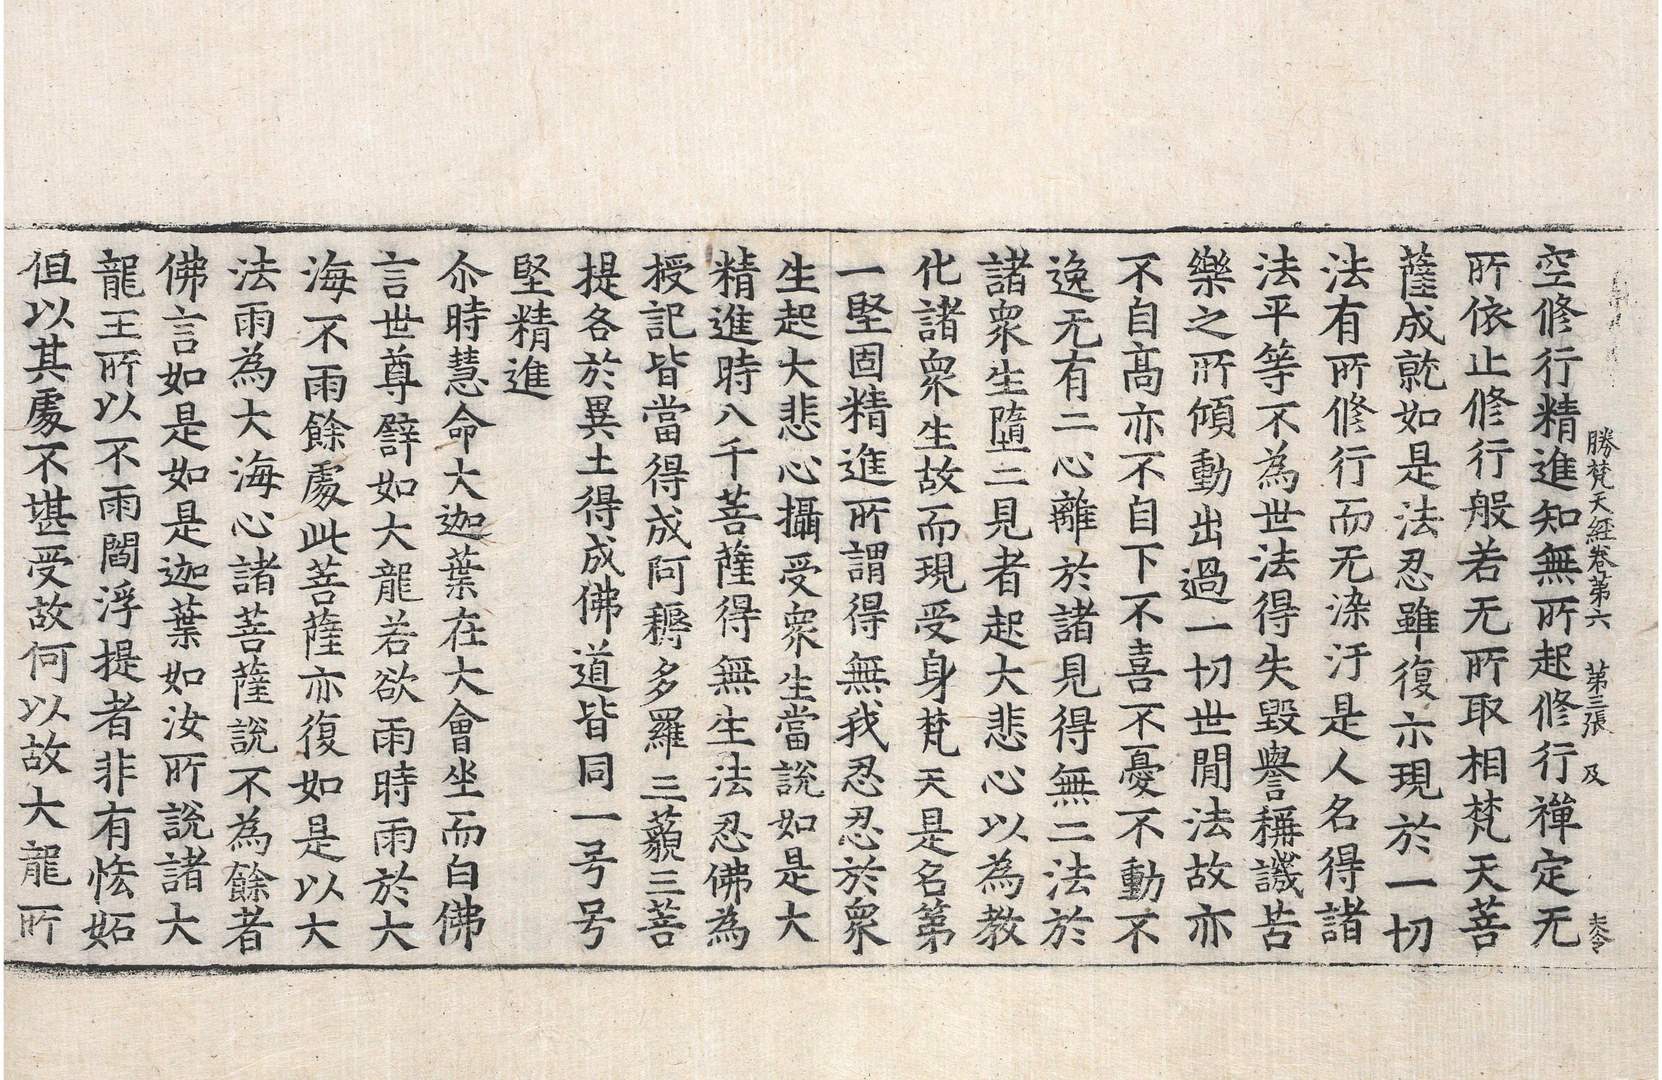 勝梵天經卷第六 第三張 及
空修行精進知無所起修行禪定无
所依止修行般若无所取相梵天菩
薩成就如是法忍雖復示現於一切
法有所修行而无染汙是人名得諸
法平等不為世法得失毀譽稱譏苦
樂之所傾動出過一切世閒法故亦
不自高亦不自下不喜不憂不動不
逸无有二心離於諸見得無二法於
諸衆生墮二見者起大悲心以為教
化諸衆生故而現受身梵天是名第
一堅固精進所謂得無我忍忍於衆
生起大悲心攝受衆生當說如是大
精進時八千菩薩得無生法忍佛為
授記皆當得成阿耨多羅三藐三菩
提各於異土得成佛道皆同一号号
堅精進
尒時慧命大迦葉在大會坐而白佛
言世尊譬如大龍若欲雨時雨於大
海不雨餘處此菩薩亦復如是以大
法雨為大海心諸菩薩說不為餘者
佛言如是如是迦葉如汝所說諸大
龍王所以不雨閻浮提者非有恡妬
但以其處不堪受故何以故大龍所